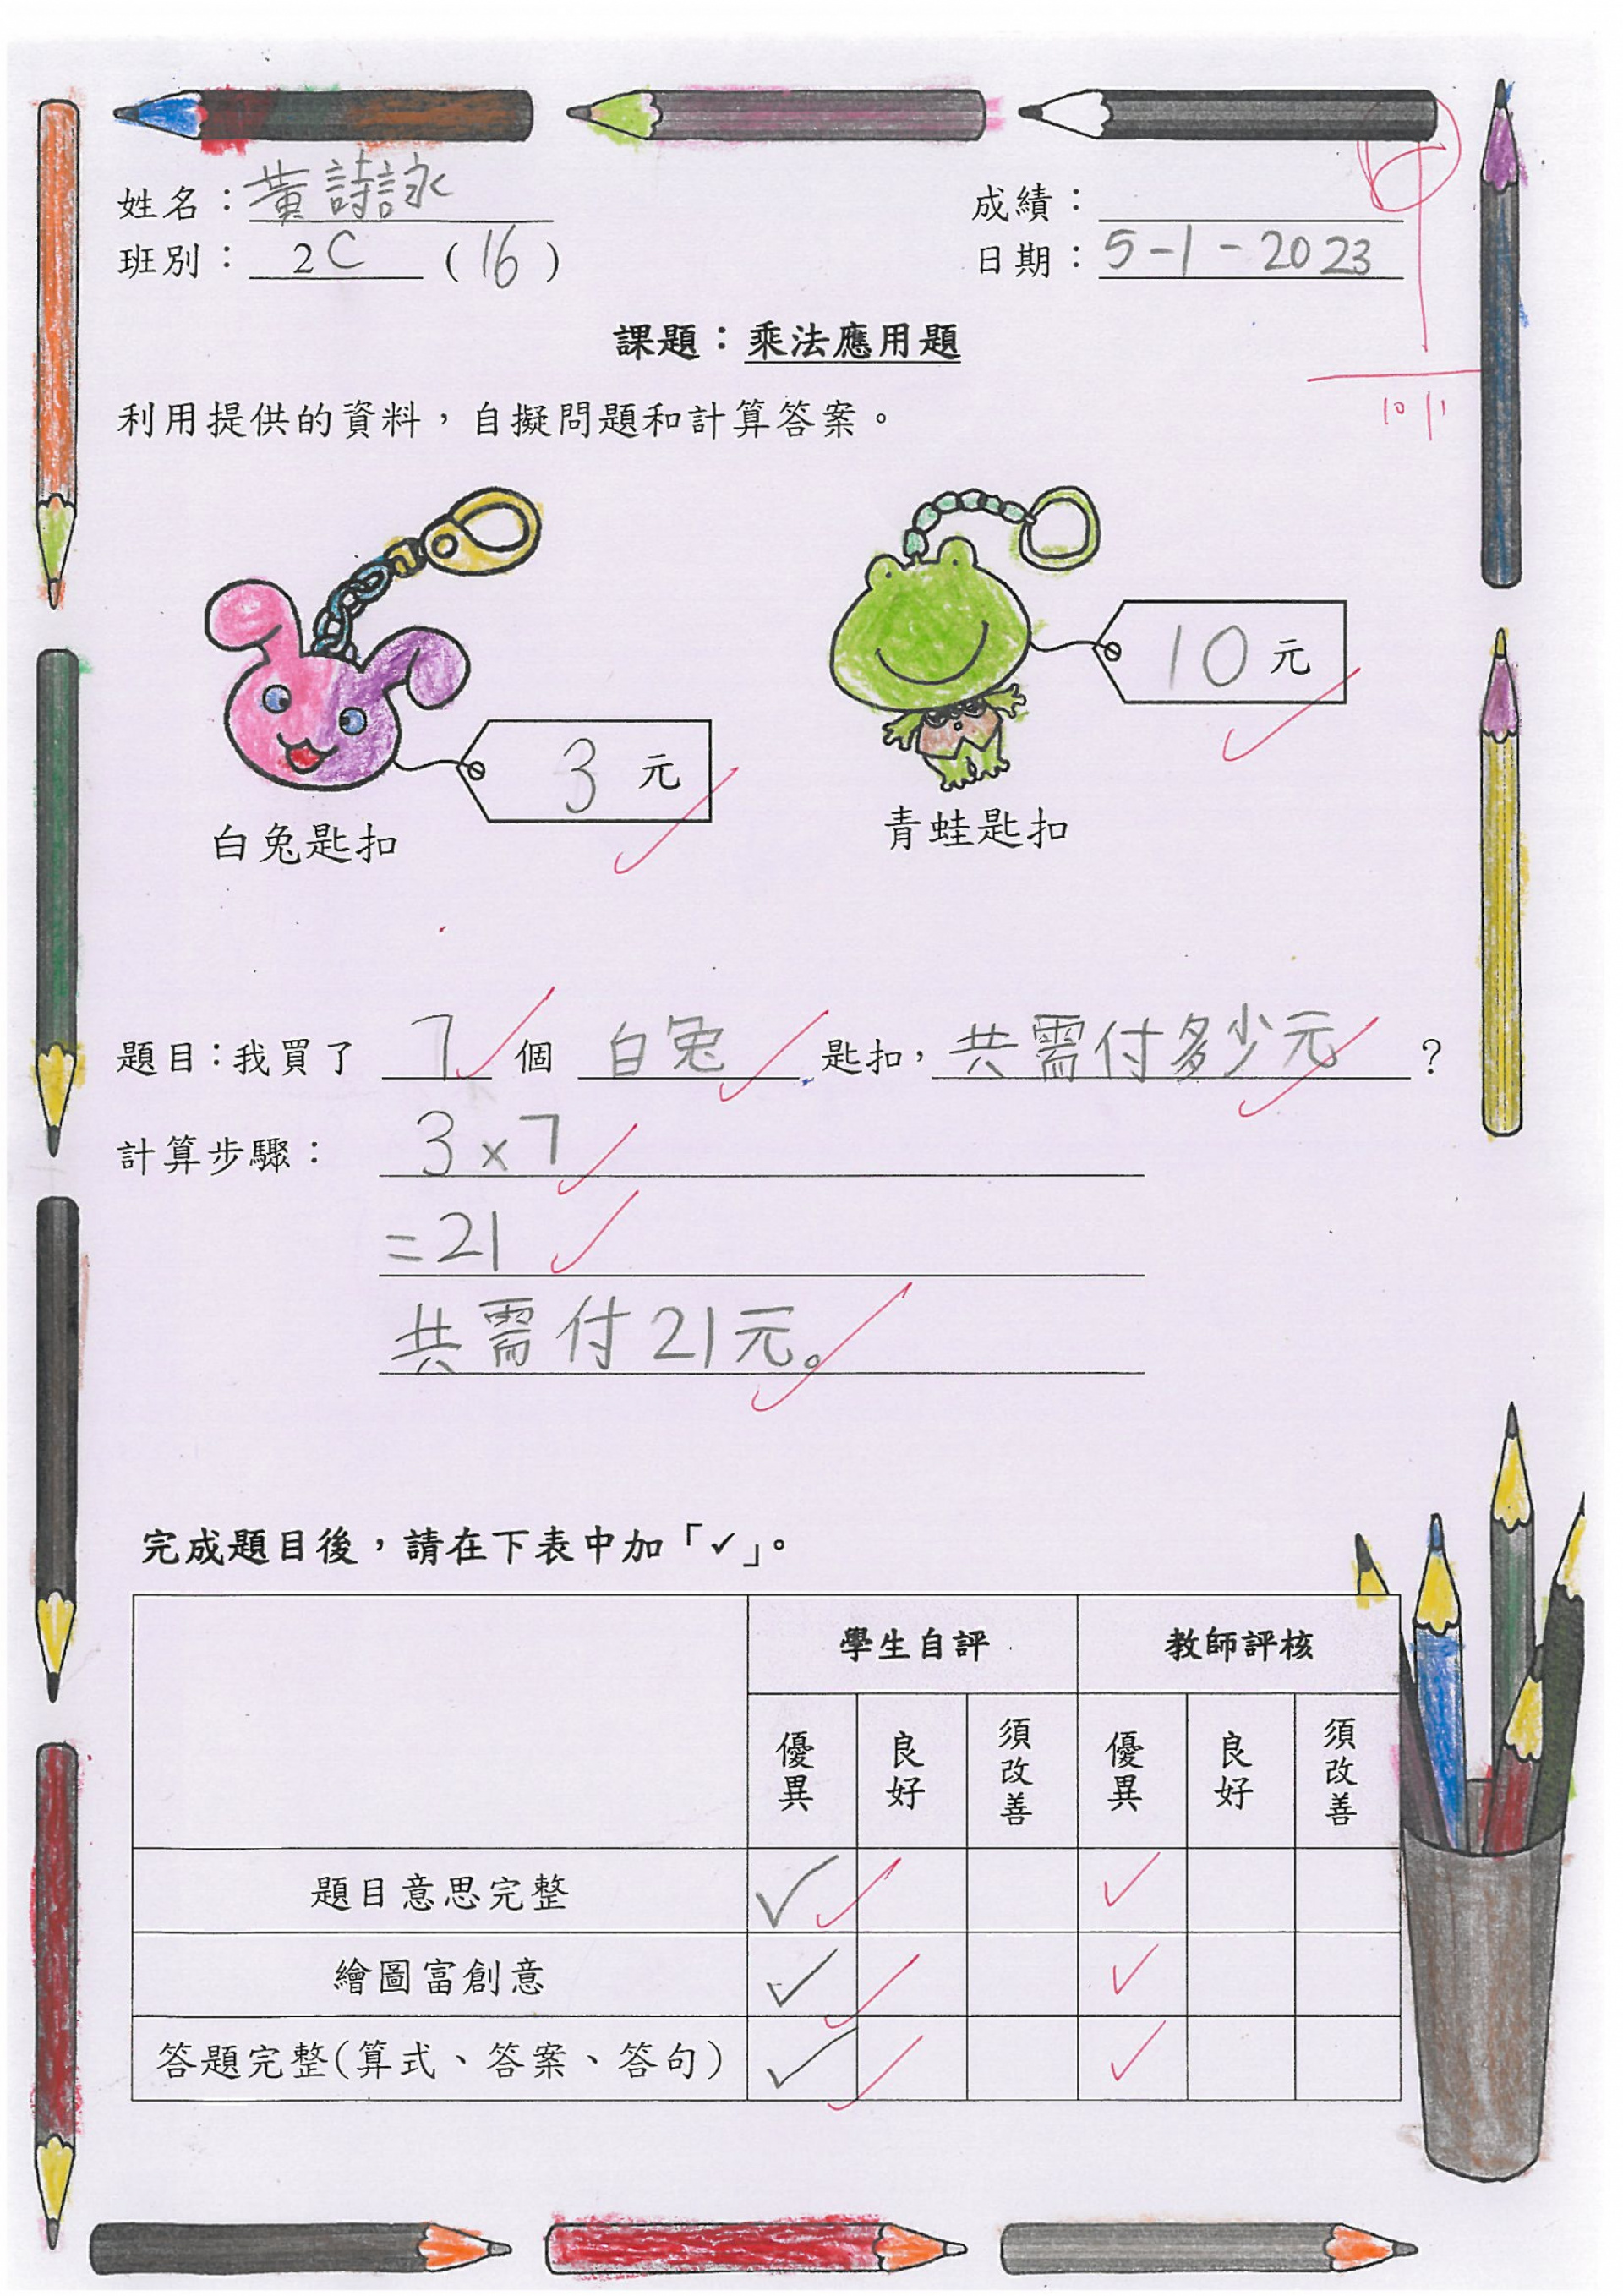 姓名：黃詩詠
成績：
班別：2C (16)
日期：5-1-2023
課題：乘法應用題
10/1
利用提供的資料，自擬問題和計算答案。
10元
3元
白兔匙扣
青蛙匙扣
題目：我買了 7 個 白兔 匙扣，共需付多少元？
計算步驟：3×7
=21
共需付21元。
完成題目後，請在下表中加「✓」。
學生自評 教師評核
優異 良好 須改善 優異 良好 須改善
題目意思完整 ✓ ✓
繪圖富創意 ✓ ✓
答題完整(算式、答案、答句) ✓ ✓